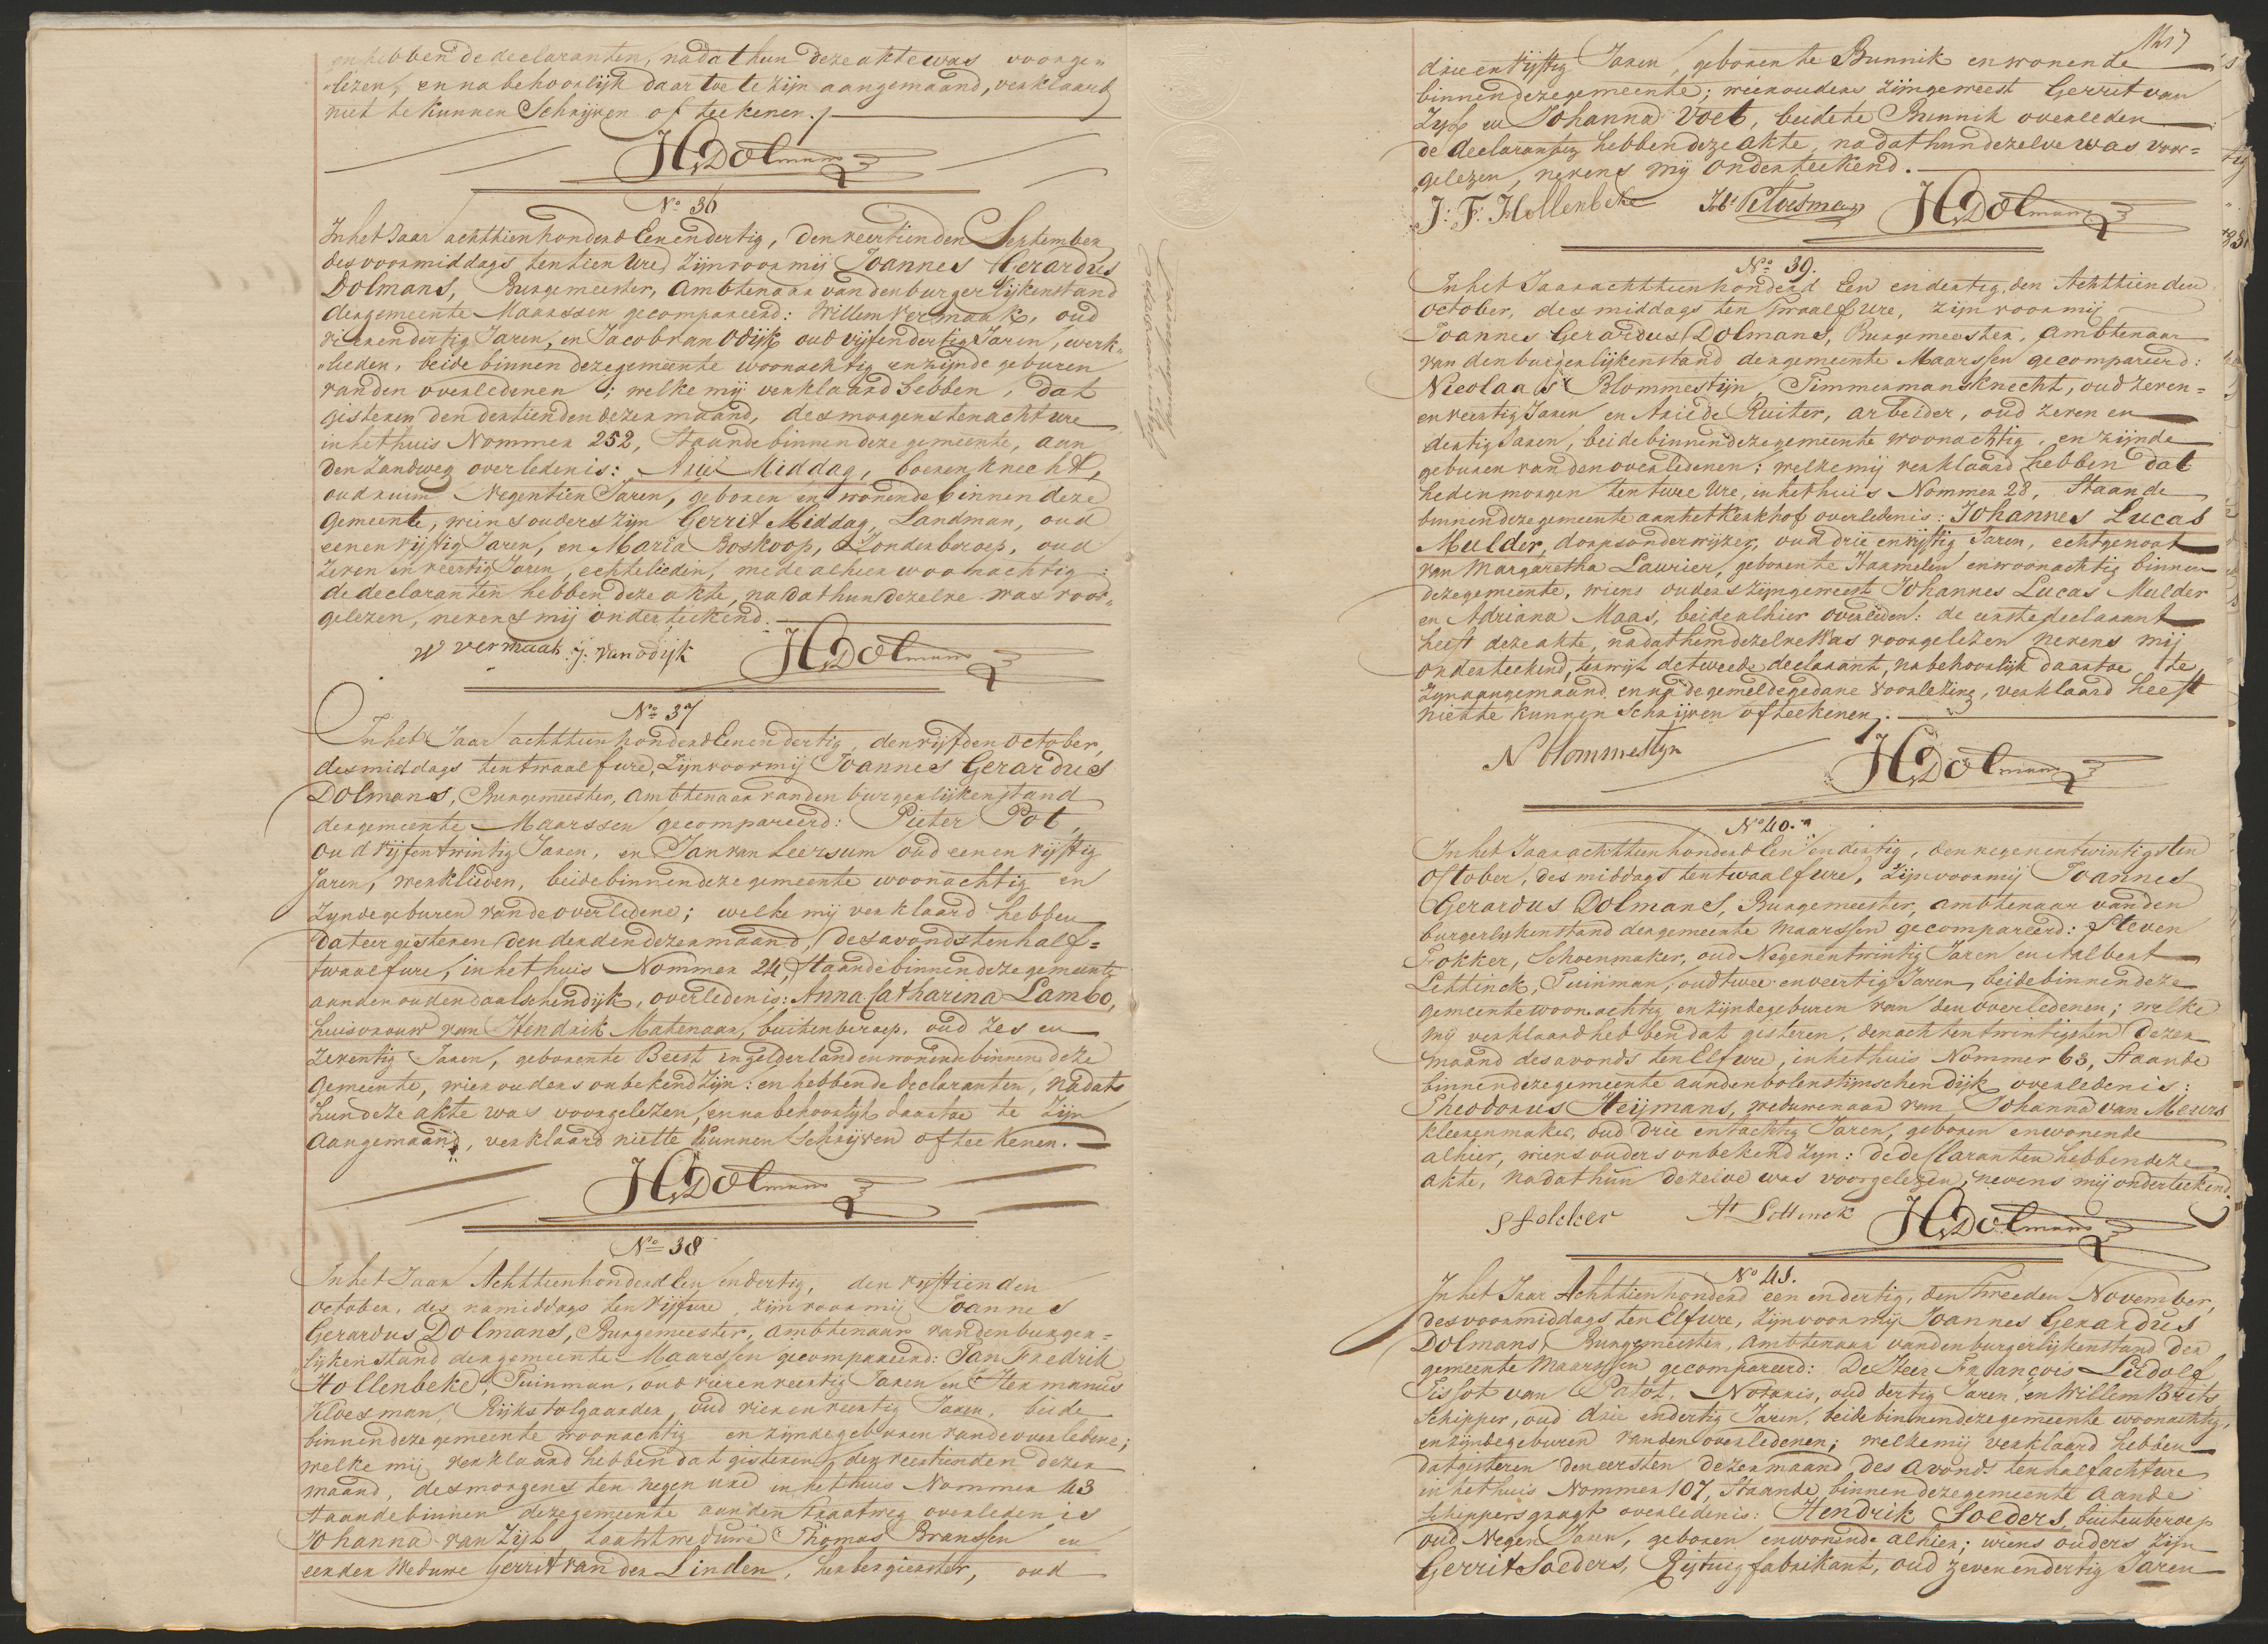 en hebben de declaranten, nadat hun deze akte was voorge„
„lezen, en na behoorlijk daartoe te zijn aangemaand, verklaard
niet te kunnen Schrijven of teekenen.
JGDolmans
No 36
In het Jaar achttienhonderd Een en dertig, den veertienden September
des voormiddags ten tien Ure, zijn voor mij Joannes Gerardus
Dolmans, Burgemeester, Ambtenaar van den burgerlijken stand
der gemeente Maarssen gecompareerd: Willem Vermaak, oud
vier en dertig Jaren, en Jacob van Odijk oud vijf en dertig Jaren, werk„
„lieden, beide binnen deze gemeente woonachtig en zijnde geburen
van den overledenen; welke mij verklaard hebben, dat
gisteren den dertienden dezer maand, des morgens ten acht ure
in het huis Nommer 252, Staande binnen deze gemeente, aan
den Zandweg overleden is: Arie Middag, boerenknecht,
oud ruim Negentien Jaren, geboren en wonende binnen deze
gemeente, wiens ouders zijn Gerrit Middag, Landman, oud
een en vijftig Jaren, en Maria Boskoop, Zonder beroep, oud
zeven en veertig Jaren, echtelieden, mede alhier woonachtig:
de declaranten hebben deze akte, nadat hun dezelve was voor„
gelezen, nevens mij onderteekend.
W Vermaak J: van odijk JGDolmans
No 37
In het Jaar achttienhonderd Een en dertig, den vijfden October,
des middags ten twaalf ure, Zijn voor mij Joannes Gerardus
Dolmans, Burgemeester, Ambtenaar van den burgerlijken stand
der gemeente Maarssen gecompareerd: Pieter Pot,
oud vijf en twintig Jaren, en Jan van Leersum oud een en vijftig
Jaren, werklieden, beide binnen deze gemeente woonachtig en
Zijnde geburen van de overledene; welke mij verklaard hebben
dat eergisteren den derden dezer maand, des avonds ten half=
twaalf ure, in het huis Nommer 24, Staande binnen deze gemeente
aan den ouden daalschen dijk, overleden is: Anna Catharina Lambo,
huisvrouw van Hendrik Matenaar, buiten beroep, oud zes en
zeventig Jaren, geboren te Beest in gelderland en wonende binnen deze
Gemeente, wier ouders onbekend zijn: en hebben de declaranten, nadat
hun deze akte was voorgelezen, en na behoorlijk daartoe te zijn
aangemaand, verklaard niet te kunnen Schrijven of teekenen.
JGDolmans
No 38
In het Jaar Achttienhonderd Een en dertig, den vijftienden
October, des namiddags ten vijf ure, zijn voor mij Joannes
Gerardus Dolmans, Burgemeester, Ambtenaar van den burger=
„lijken stand der gemeente Maarssen gecompareerd: Jan Fredrik
Hollenbeke, Tuinman, oud vier en veertig Jaren en Hermanus
Kloesman, Rijkstolgaarder, oud vier en veertig Jaren, beide
binnen deze gemeente woonachtig en zijnde geburen van de overledene;
welke mij verklaard hebben dat gisteren, den veertienden dezer
maand, des morgens ten negen ure in het huis Nommer 43
Staande binnen deze gemeente aan den Straatweg overleden is
Johanna van Zijl laatst weduwe Thomas Branssen en
eerder Weduwe Gerrit van der Linden, herbergierster, oud
drie en vijftig Jaren, geboren te Bunnik en wonende
binnen deze gemeente; wier ouders zijn geweest Gerrit van
Zijl en Johanna Voet, beide te Bunnik overleden
de declaranten hebben deze akte, nadat hun dezelve was voor=
„gelezen, nevens mij onderteekend.
J: F: Hollenbeke Kloesman JGDolmans
No 39.
In het Jaar achttienhonderd Een en dertig, den Achttienden
October, des middags ten Twaalf ure, zijn voor mij
Joannes Gerardus Dolmans, Burgemeester, Ambtenaar
van den burgerlijken stand der gemeente Maarssen gecompareerd:
Nicolaas Blommestijn Timmermansknecht, oud zeven=
en veertig Jaren en Arie de Ruiter, arbeider, oud zeven en
dertig Jaren, beide binnen deze gemeente woonachtig, en zijnde
geburen van den overledenen; welke mij verklaard hebben dat
heden morgen ten twee Ure, in het huis Nommer 28, Staande
binnen deze gemeente aan het Kerkhof overleden is: Johannes Lucas
Mulder, dorpsonderwijzer, oud drie en vijftig Jaren, echtgenoot
van Margaretha Laurier, geboren te Harmelen en woonachtig binnen
deze gemeente, wiens ouders zijn geweest Johannes Lucas Mulder
en Adriana Maas, beide alhier overleden: de eerste declarant
heeft deze akte, nadat hem dezelve was voorgelezen nevens mij
onderteekend, terwijl de tweede declarant, na behoorlijk daartoe te
zijn aangemaand, en na de gemelde gedane voorlezing, verklaard heeft
niet te kunnen Schrijven of teekenen.
N Blommestijn JGDolmans
No 40.
In het Jaar achttienhonderd Een en dertig, den negen en twintigsten
October, des middags ten twaalf ure, Zijn voor mij Joannes
Gerardus Dolmans, Burgemeester, Ambtenaar van den
burgerlijken stand der gemeente Maarssen gecompareerd: Steven
Fokker, Schoenmaker, oud Negen en twintig Jaren en Aalbert
Lettinck, Tuinman, oud twee en veertig Jaren, beide binnen deze
gemeente woonachtig en zijnde geburen van den overledenen; welke
mij verklaard hebben dat gisteren, den acht en twintigsten dezer
maand des avonds ten Elf ure, in het huis Nommer 63, Staande
binnen deze gemeente aan den bolenstijnschen dijk overleden is:
Theodorus Heijmans, weduwenaar van Johanna van Meurs
kleermaker, oud drie en tachtig Jaren, geboren en wonende
alhier, wiens ouders onbekend zijn: de declaranten hebben deze
akte, nadat hun dezelve was voorgelezen, nevens mij onderteekend.
S Fokker A Lettinck JGDolmans
No 41.
In het Jaar Achttienhonderd een en dertig, den Tweeden November,
des voormiddags ten Elf ure, Zijn voor mij Joannes Gerardus
Dolmans, Burgemeester, Ambtenaar van den burgerlijken stand der
gemeente Maarssen gecompareerd: De Heer François Ludolf
Tissot van Patot, Notaris, oud dertig Jaren, en Willem Brits
Schipper, oud drie en dertig Jaren, beide binnen deze gemeente woonachtig,
en zijnde geburen van den overledenen; welke mij verklaard hebben
dat gisteren den eersten dezer maand des avonds ten half acht ure
in het huis Nommer 107, Staande binnen deze gemeente aan de
Schippersgragt overleden is: Hendrik Soeders, buiten beroep
oud Negen Jaren, geboren en wonende alhier; wiens ouders zijn
Gerrit Soeders, Rijtuigfabrikant, oud zeven en dertig Jaren